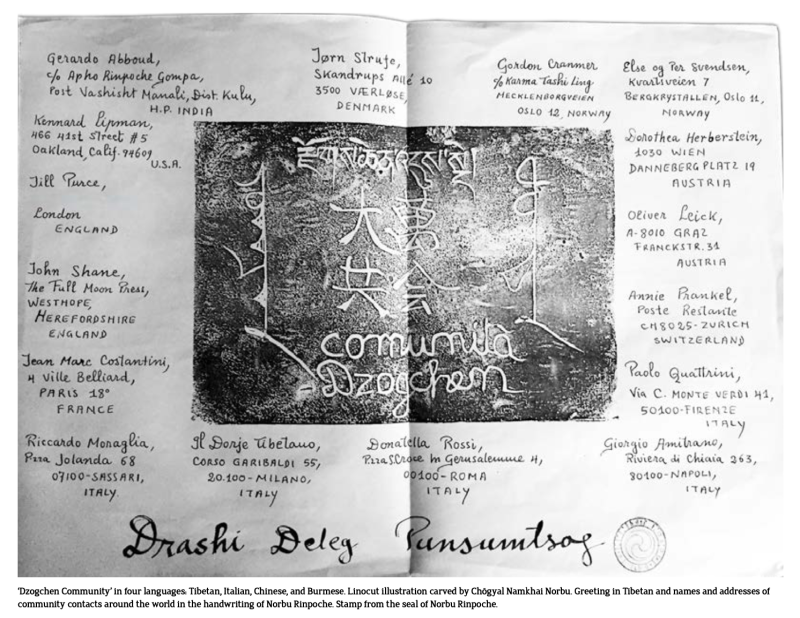 Gerardo Abboud,
c/o Apho Rinpoche Gompa,
Post Vashisht Manali, Dist. Kulu,
H.P. INDIA
Jørn Strufe,
Skandrups Allé 10
3500 VÆRLØSE,
DENMARK
Gordon Cranmer
c/o Karma Tashi Ling
MECKLENBORGVEIEN
OSLO 12, NORWAY
Else og Per Svendsen,
Kvartsveien 7
BERGKRYSTALLEN, Oslo 11,
NORWAY
Kennard Lipman,
466 41st Street #5
Oakland, Calif. 94609
U.S.A.
Dorothea Herberstein,
1030 WIEN
DANNEBERG PLATZ 19
AUSTRIA
Jill Purce,
London
ENGLAND
Oliver Leick,
A-8010 GRAZ
FRANCKSTR. 31
AUSTRIA
John Shane,
The Full Moon Press,
WESTHOPE,
HEREFORDSHIRE
ENGLAND
Annie Prankel,
Poste Restante
CH8025-ZURICH
SWITZERLAND
大
共
comunità
Dzogchen
Jean Marc Costantini,
4 Ville Belliard,
PARIS 18°
FRANCE
Paolo Quattrini,
Via C. MONTE VERDI 41,
50100-FIRENZE
ITALY
Riccardo Monaglia,
Pzza Jolanda 68
07100-SASSARI,
ITALY.
Il Dorje Tibetano,
CORSO GARIBALDI 55,
20.100-MILANO,
ITALY
Donatella Rossi,
Pzza S.Croce in Gerusalemme 4,
00100-ROMA
ITALY
Giorgio Amitrano,
Riviera di Chiaia 263,
80100-NAPOLI,
ITALY
Drashi Deleg Punsumtsog
'Dzogchen Community' in four languages: Tibetan, Italian, Chinese, and Burmese. Linocut illustration carved by Chögyal Namkhai Norbu. Greeting in Tibetan and names and addresses of
community contacts around the world in the handwriting of Norbu Rinpoche. Stamp from the seal of Norbu Rinpoche.